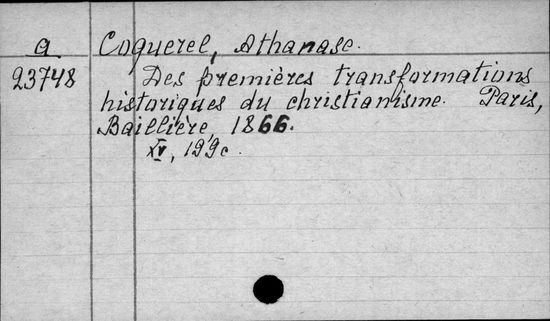 a
Coquerel, Athanase.
23748
Des premières transformations
historiques du christianisme. Paris,
Baillière, 1866.
XV, 199c.